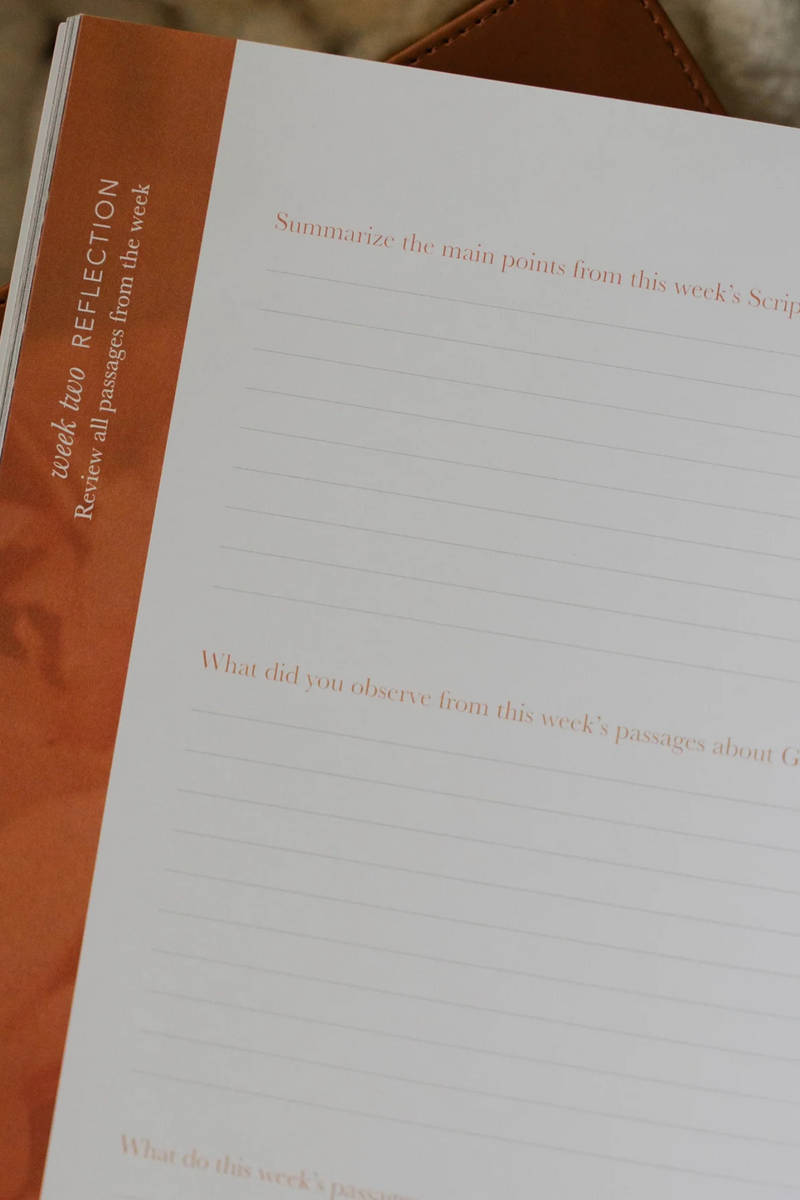 week two REFLECTION
Review all passages from the week
Summarize the main points from this week's Scrip
What did you observe from this week's passages about G
What do this week's passag